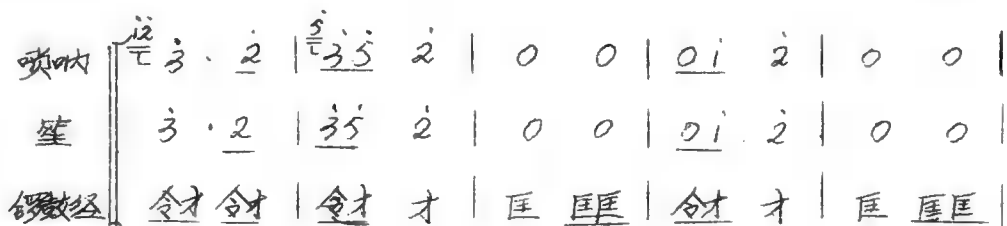 唢呐 i̇2̇ 3̇ · 2̇ | 5̇ 3̇5̇ 2̇ | 0 0 | 0i̇ 2̇ | 0 0 |
笙 3̇ · 2 | 3̇5̇ 2̇ | 0 0 | 0i̇ 2̇ | 0 0 |
锣鼓经 令才 令才 | 令才 才 | 匡 匡匡 | 令才 才 | 匡 匡匡 |